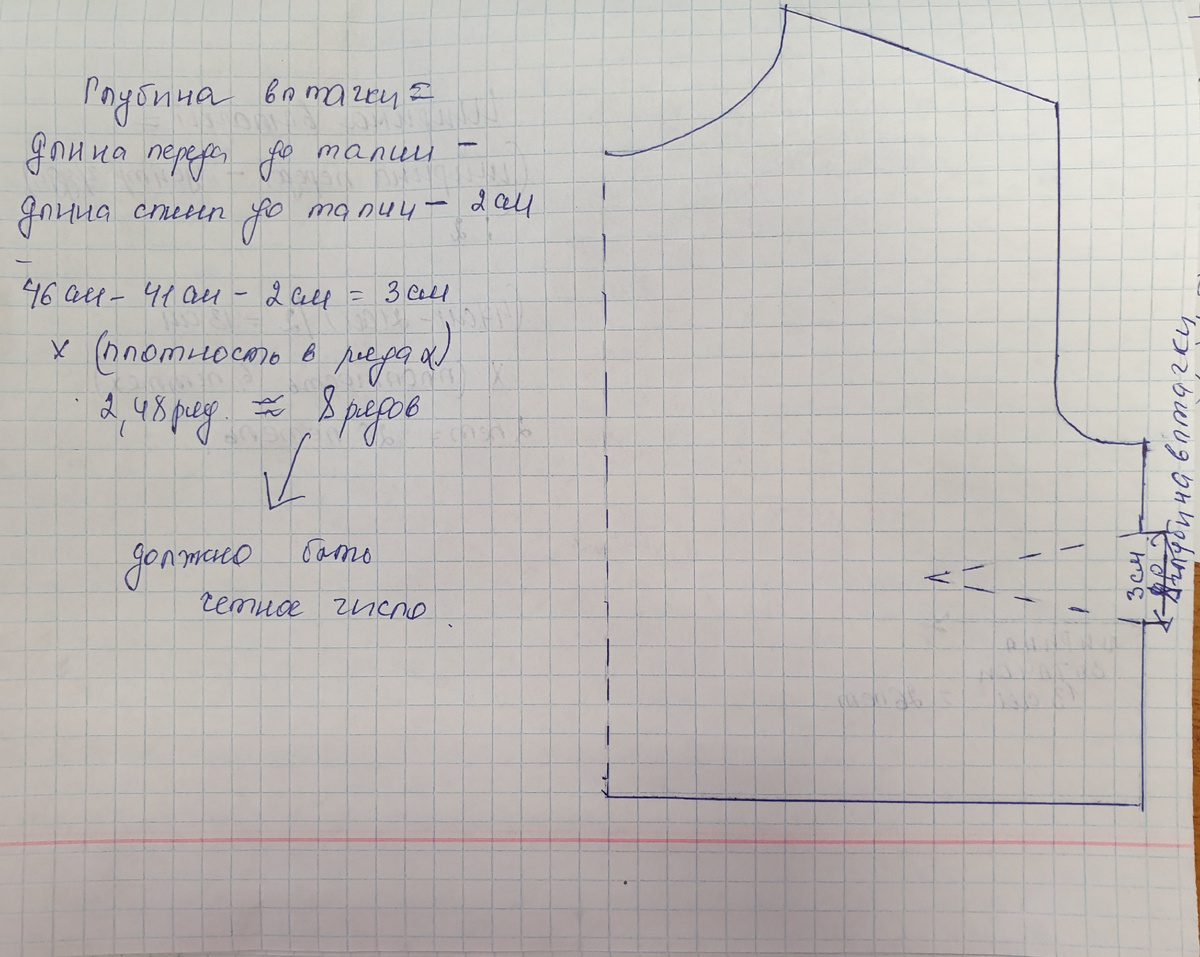 Глубина вытачки =
Длина переда до талии -
Длина спины до талии - 2 см
46 см - 41 см - 2 см = 3 см
х (плотность в рядах)
2,48 ряд. ≈ 8 рядов
должно быть
четное число.
3 см
8 р
глубина вытачки